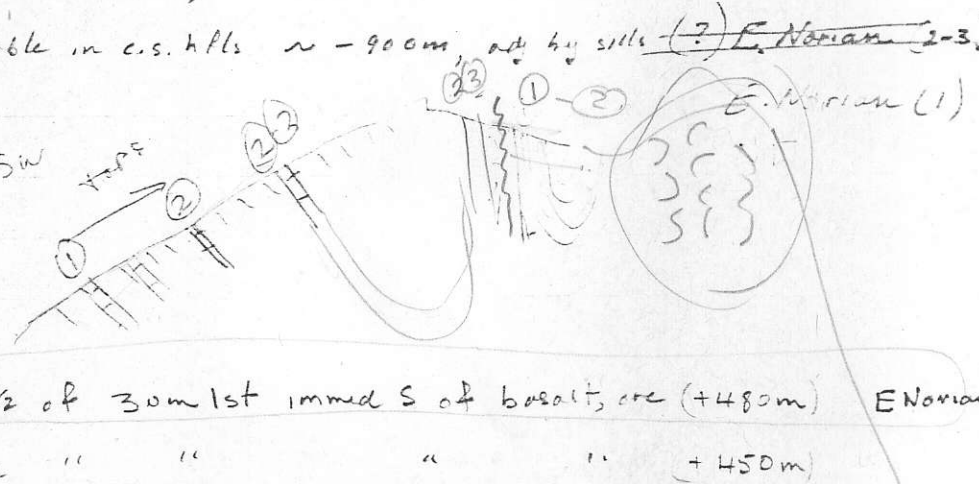 ble in c.s. hfls ~ -900m, adj by sills (?) E. Norian (2-3,
E. Norian (1)
②③ ① - ②
②-③
②
①
1/2 of 30m lst immed S of basalt, ore (+480m) ENorian
" " " " (+450m)